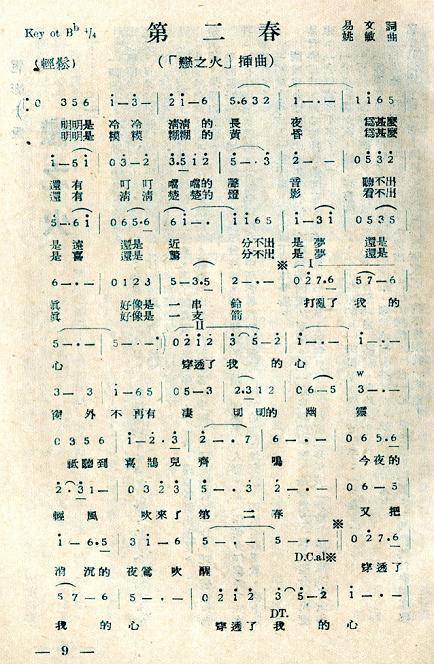 Key of B♭ 4/4
第二春
易文詞
姚敏曲
(輕鬆)
(「戀之火」插曲)
0 3 5 6 i - 3 - 2 i - 6 5 . 6 3 2 i - · - i i 6 5
明明是 冷 冷 清清的 長 夜 為甚麼
明明是 模 模 糊糊的 黃 昏 為甚麼
i - 5 i 0 3 - 2 3 . 5 i 2 5 - · 3 2 - · - 0 5 3 2
還 有 叮 叮 噹噹的 聲 音 聽不出
還 有 清 清 楚楚的 燈 影 看不出
5 - 6 i 0 6 5 . 6 i - · - i i 6 5 i - 3 i 0 5 3 5
是 遠 還是 近 分不出 是 夢 還是
是 喜 還是 驚 分不出 是 夢 還是
※ I
6 - · - 0 1 2 3 5 - 3 . 5 2 - · - 0 2 7 . 6 5 7 - 6
眞 好像是 一 串 鈴 打亂了 我 的
眞 好像是 一 支 箭
II
5 - · - 5 - · - 0 2 i 2 3 5 - 2 i - · - i - · -
心 穿透了 我 的 心
3 - 3 i - 6 5 0 5 - 3 2 . 3 1 2 0 6 - 5 3 - · -
窗 外 不 再有 凄 切切的 幽 靈
0 3 5 6 i - 2 . 3 2 - · 7 6 - · - 0 6 5 . 6
祗聽到 喜 鵲兒 齊 鳴 今夜的
2 . 3 1 - 0 3 2 3 5 - · 3 2 - · - 0 6 - 5
輕 風 吹來了 第 二 春 又把
※
i - 6 . 5 3 i - 6 5 - · - 5 - · - 0 2 7 . 6
消 沉的 夜鶯 吹 醒 穿透了
D.C.al※
5 7 - 6 5 - · - 0 2 i 2 3 5 - 2 i - · - i - · -
DT.
我 的 心 穿透了 我 的 心
— 9 —